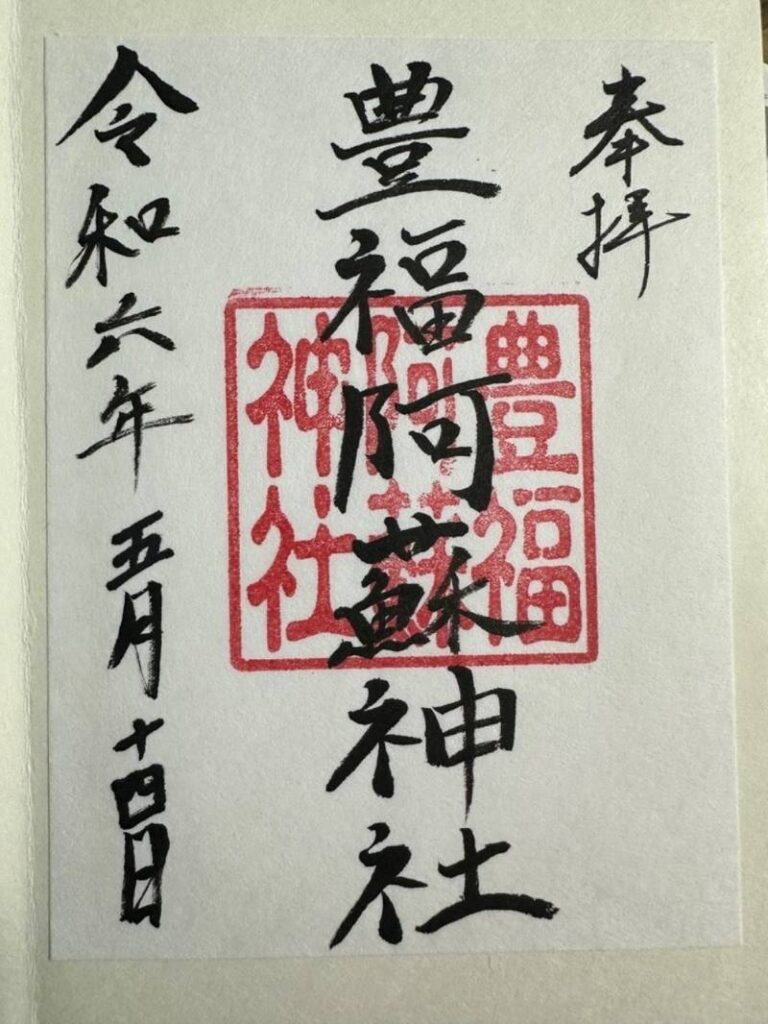 奉拝
豊福阿蘇神社
豊福
阿蘇
神社
令和六年五月十四日